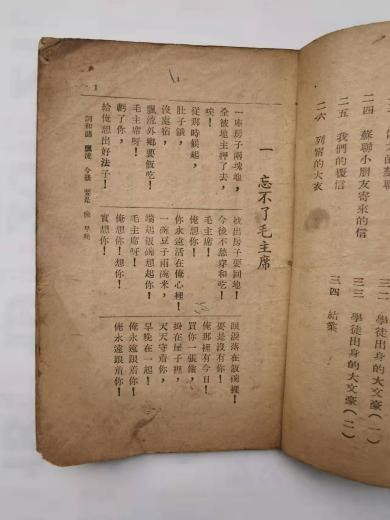 二四 蘇聯小朋友寄來的信
二五 我們的覆信
二六 列寧的大衣
學徒出身的大文豪（一）
三三 學徒出身的大文豪（二）
三四 結業
1
一 忘不了毛主席
一座房子兩塊地，
全被地主押了去，
唉！
從那時候起，
肚子餓，
沒處宿，
飄流外鄉要飯吃！
毛主席呀！
虧了你，
給俺想出好法子！
找出房子要回地！
今後不愁穿和吃！
毛主席！
俺想你！
你永遠活在俺心裡！
一碗豆子兩碗米，
端起飯碗想起你！
毛主席呀！
俺想你！想你！
實想你！
眼淚落在飯碗裡！
要是沒有你！
俺那裡有今日！
買你一張像，
掛在屋子裡，
天天守着你，
早晚在一起！
俺永遠跟着你！
俺永遠跟着你！
詞和語 飄流 今後 要是 俺 早晚